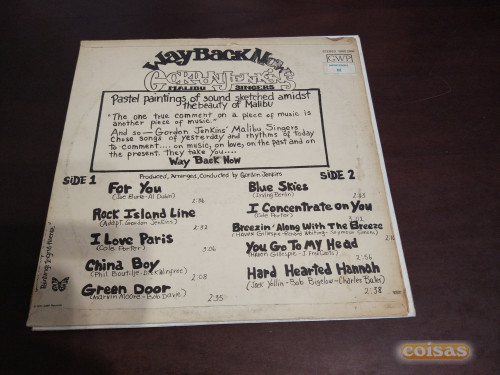 Way Back Now
Gordon Jenkins'
MALIBU SINGERS
GWP
Pastel paintings of sound sketched amidst
the beauty of Malibu
"The one true comment on a piece of music is
another piece of music."
And so — Gordon Jenkins' Malibu Singers
chose songs of yesterday and rhythms of today
to comment.... on music, on love, on the past and on
the present. They take you....
Way Back Now
Produced, Arranged, Conducted by Gordon Jenkins
SIDE 1
For You
(Joe Burke - Al Dubin)
2:36
Rock Island Line
(Adapt. Gordon Jenkins)
2:32
I Love Paris
(Cole Porter)
3:06
China Boy
(Phil Boutelje - Dick Winfree)
2:08
Green Door
(Marvin Moore - Bob Davie)
2:35
SIDE 2
Blue Skies
(Irving Berlin)
2:43
I Concentrate on You
(Cole Porter)
3:02
Breezin' Along With The Breeze
(Haven Gillespie - Richard Whiting - Seymour Simons)
You Go To My Head
(Haven Gillespie - J. Fred Coots)
2:54
Hard Hearted Hannah
(Jack Yellin - Bob Bigelow - Charles Bates)
2:58
coisas